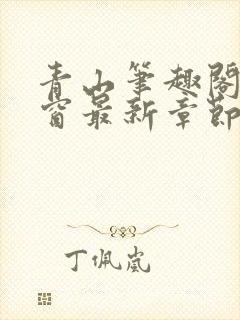 青山筆趣閣
窗最新章節
丁佩嵐